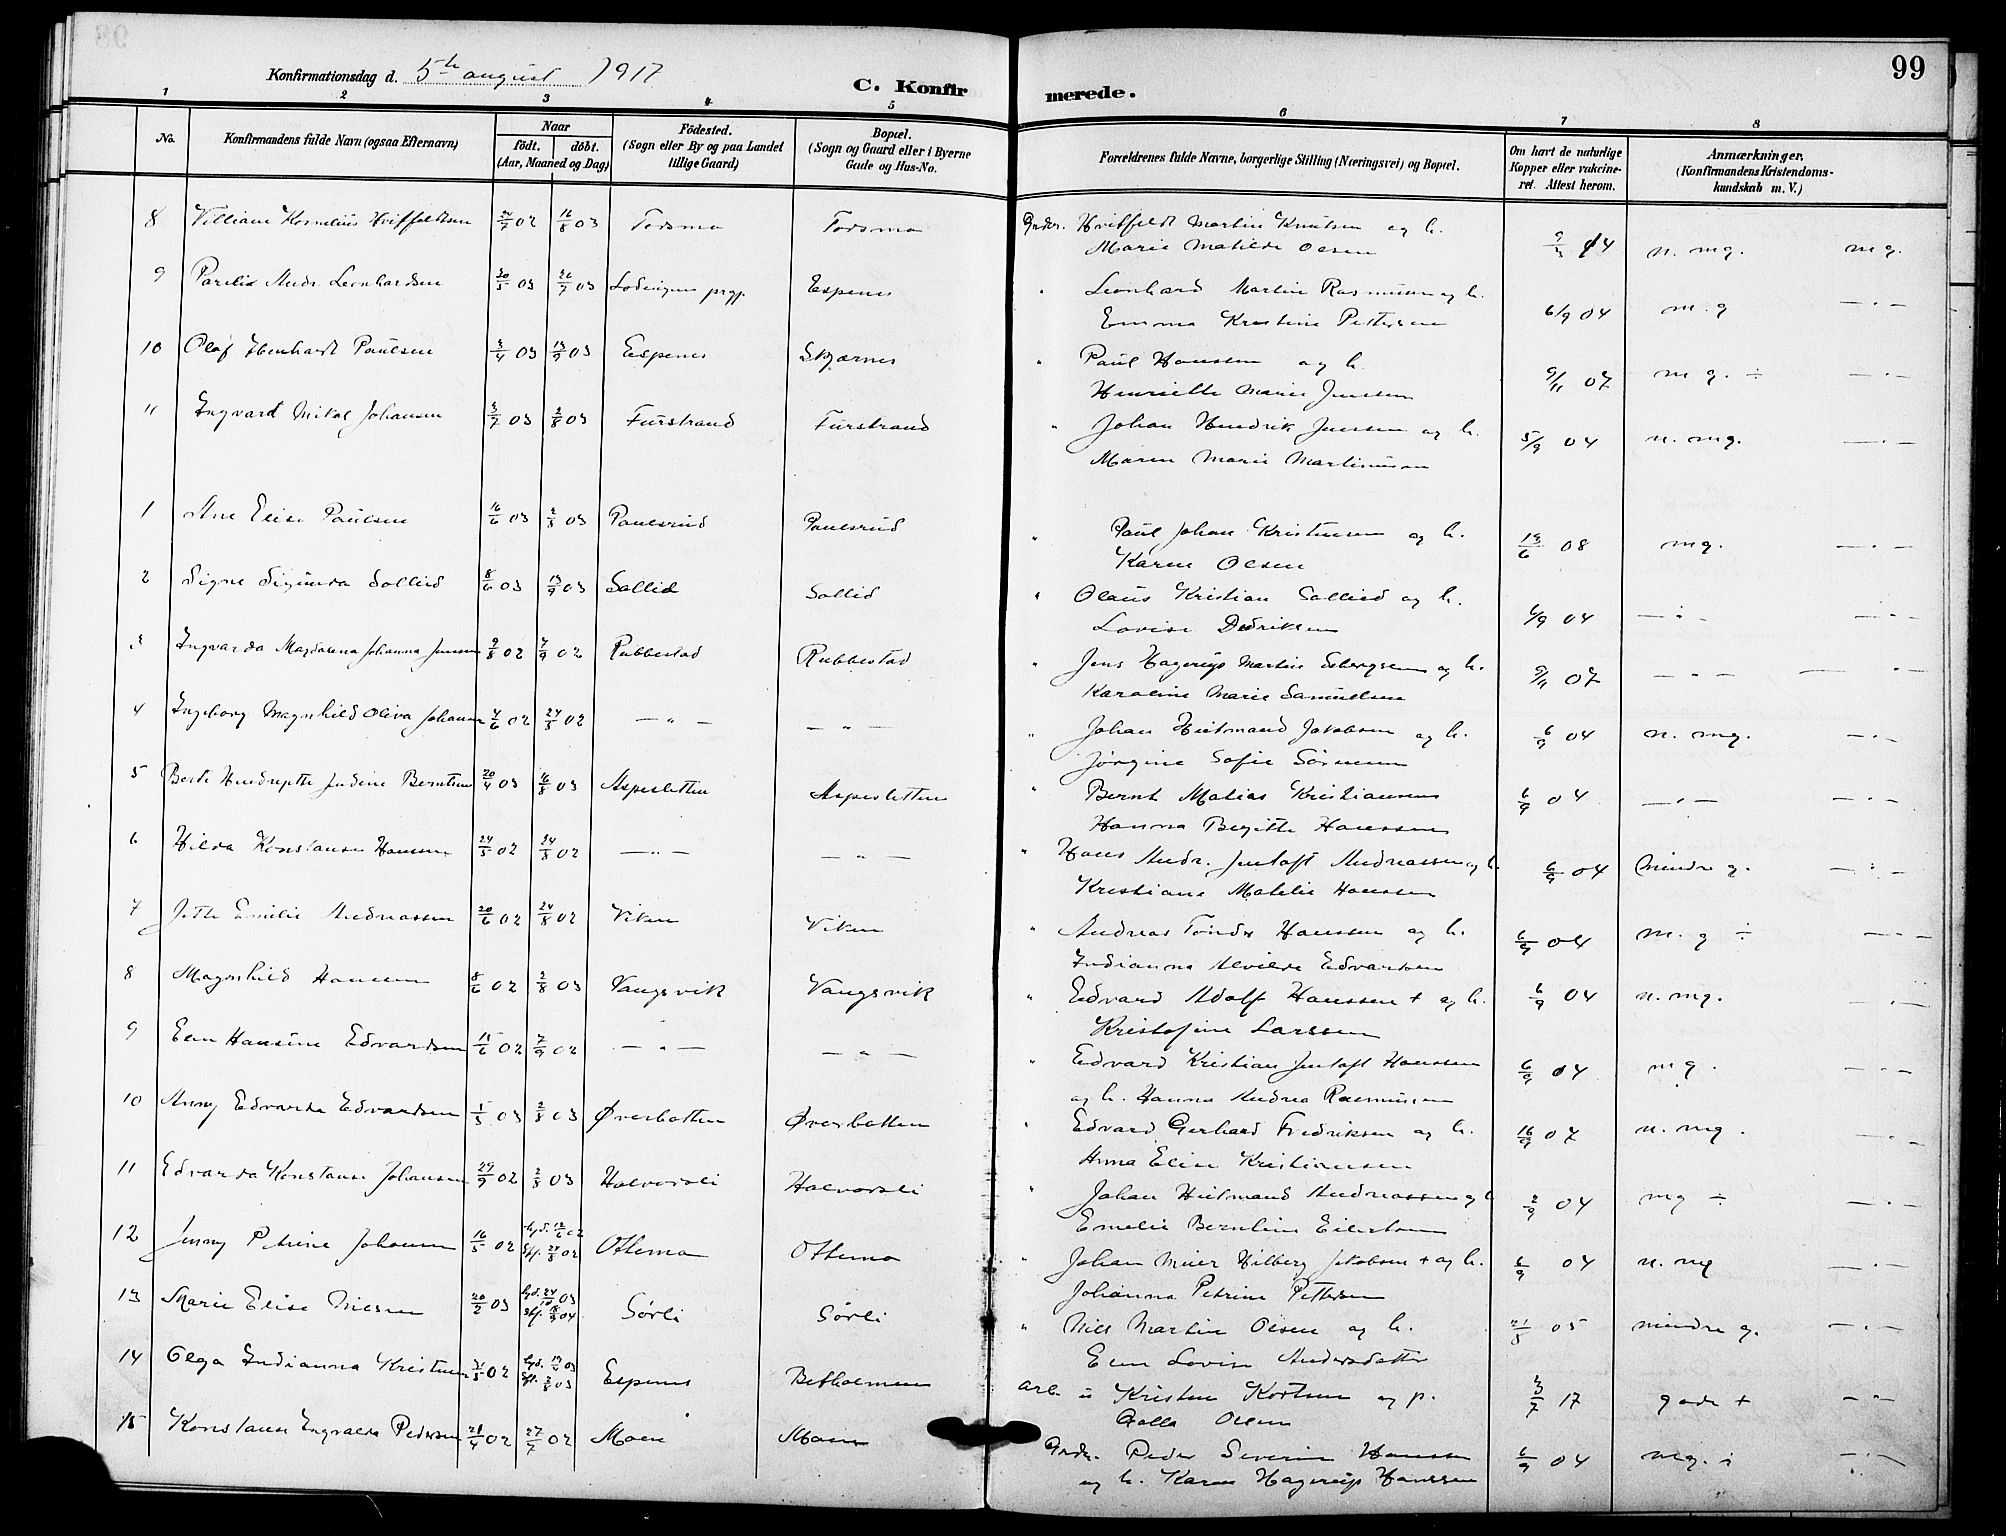 99
Konfirmationsdag d. 5th august 1917
C. Konfirmerede.
1 2 3 4 5 6 7 8
No.
Konfirmandens fulde Navn (ogsaa Efternavn)
Naar
født. døbt.
(Aar, Maaned og Dag)
Fødested.
(Sogn eller By og paa Landet
tillige Gaard)
Bopæl.
(Sogn og Gaard eller i Byerne
Gade og Hus-No.
Forældrenes fulde Navne, borgerlige Stilling (Næringsvei) og Bopæl.
Om havt de naturlige
Kopper eller vakcine-
ret. Attest herom.
Anmærkninger.
(Konfirmandens Kristendoms-
kundskab m. V.)
8 Villiam Kornelius Hvitfeldtsen 24/7 02 16/8 03 Torsmo Torsmo Gndr. Hvitfeldt Martin Knutsen og h. 04 n. mg. mg.
Marie Matilde Olsen
9 Andr. Leonhardsen 20/5 03 26/7 03 Lødingen prgj. Espenes " Leonhard Martin Rasmussen og h. 6/9 04 m. g — " —
Emma Kristine Pettersen
10 Olaf Ebenhardt Paulsen 3/4 03 13/9 03 Espenes Skjærnes " Paul Hanssen og h. 9/11 07 m g. ÷ — " —
Henriette Marie Jenssen
11 Ingvard Nikal Johansen 3/7 03 2/8 03 Furstrand Furstrand " Johan Hendrik Jenssen og h. 5/9 04 n. mg. — " —
Maren Marie Martinussen
1 Ane Elise Paulsen 16/6 03 2/8 03 Paulsrud Paulsrud " Paul Johan Kristensen og h. 13/6 08 mg. — " —
Karen Olsen
2 Signe Sigunda Sollid 8/6 03 13/9 03 Sollid Sollid " Olaus Kristian Sollied og h. 6/9 04 — " — — " —
Lovise Dedriksen
3 Ingvarda Magdalena Johanna Jensen 9/8 02 7/9 02 Rubbestad Rubbestad " Jens Hagerup Martin Esbergsen og h. 9/11 07 — " — — " —
Karoline Marie Samuelsen
4 Ingeborg Magnhild Oliva Johansen 4/6 02 24/8 02 — " — — " — " Johan Hietmand Jakobsen og h. 6/9 04 n. mg. — " —
Jørgine Sofie Sørensen
5 Berte Hendrette Jentine Berntsen 20/4 03 16/8 03 Aspesletten Aspesletten " Bernt Matias Kristiansen 6/9 04 — " — — " —
Hanna Bergitte Hanssen
6 Hilda Konstanse Hanssen 24/5 02 24/8 02 — " — — " — " Hans Andr. Jentoft Andreassen og h. 6/9 04 mindre g. — " —
Kristiane Matilie Hanssen
7 Jette Emilie Andreassen 20/6 02 24/8 02 Viken Viken " Andreas Tønder Hanssen og h. 6/9 04 m. g ÷ — " —
Indianna Alvilde Edvardsen
8 Magnhild Hanssen 8/6 02 2/8 03 Vangsvik Vangsvik " Edvard Adolf Hanssen + og h. 6/9 04 n. mg. — " —
Kristofine Larssen
9 Hansine Edvardsen 11/6 02 7/9 02 — " — — " — " Edvard Kristian Jentoft Hanssen 6/9 04 mg. — " —
og h. Hanna Andrea Rasmussen
10 Anny Edvarda Edvardsen 1/5 03 2/8 03 Øverbotten Øverbotten " Edvard Gerhard Fredriksen og h. 16/9 07 n. mg. — " —
Anna Elise Kristiansen
11 Edvarda Konstanse Johansen 29/9 02 2/8 03 Halvorsli Halvorsli " Johan Hietmand Andreassen og h. 2/9 04 mg ÷ — " —
Emelie Berntine Eilertsen
12 Jenny Petrine Johansen 16/5 02 hjd. 12/6 02 Ottemo Ottemo " Johan Meier Hilberg Jakobsen + og h. 6/9 04 n. mg — " —
Stf. 24/8 02 Johanna Petrine Pettersen
13 Marie Elise Nielsen 20/2 03 hjd. 24/10 03 Sørli Sørli " Niels Martin Olsen og h. 21/5 05 mindre g. — " —
Lovise Andersdatter
14 Olga Indianna Kristensen 31/5 02 hjd. Espenes Arb. Kristen Kortsen og p. 3/7 17 gode + — " —
Stf. 2/8 03 Olsen
15 Konstanse Engvalda Pedersen 28/4 02 27/7 02 Moen Moen Gndr. Peder Severin Hanssen 6/9 04 mg. ÷ — " —
og h. Karen Hagerup Hanssen